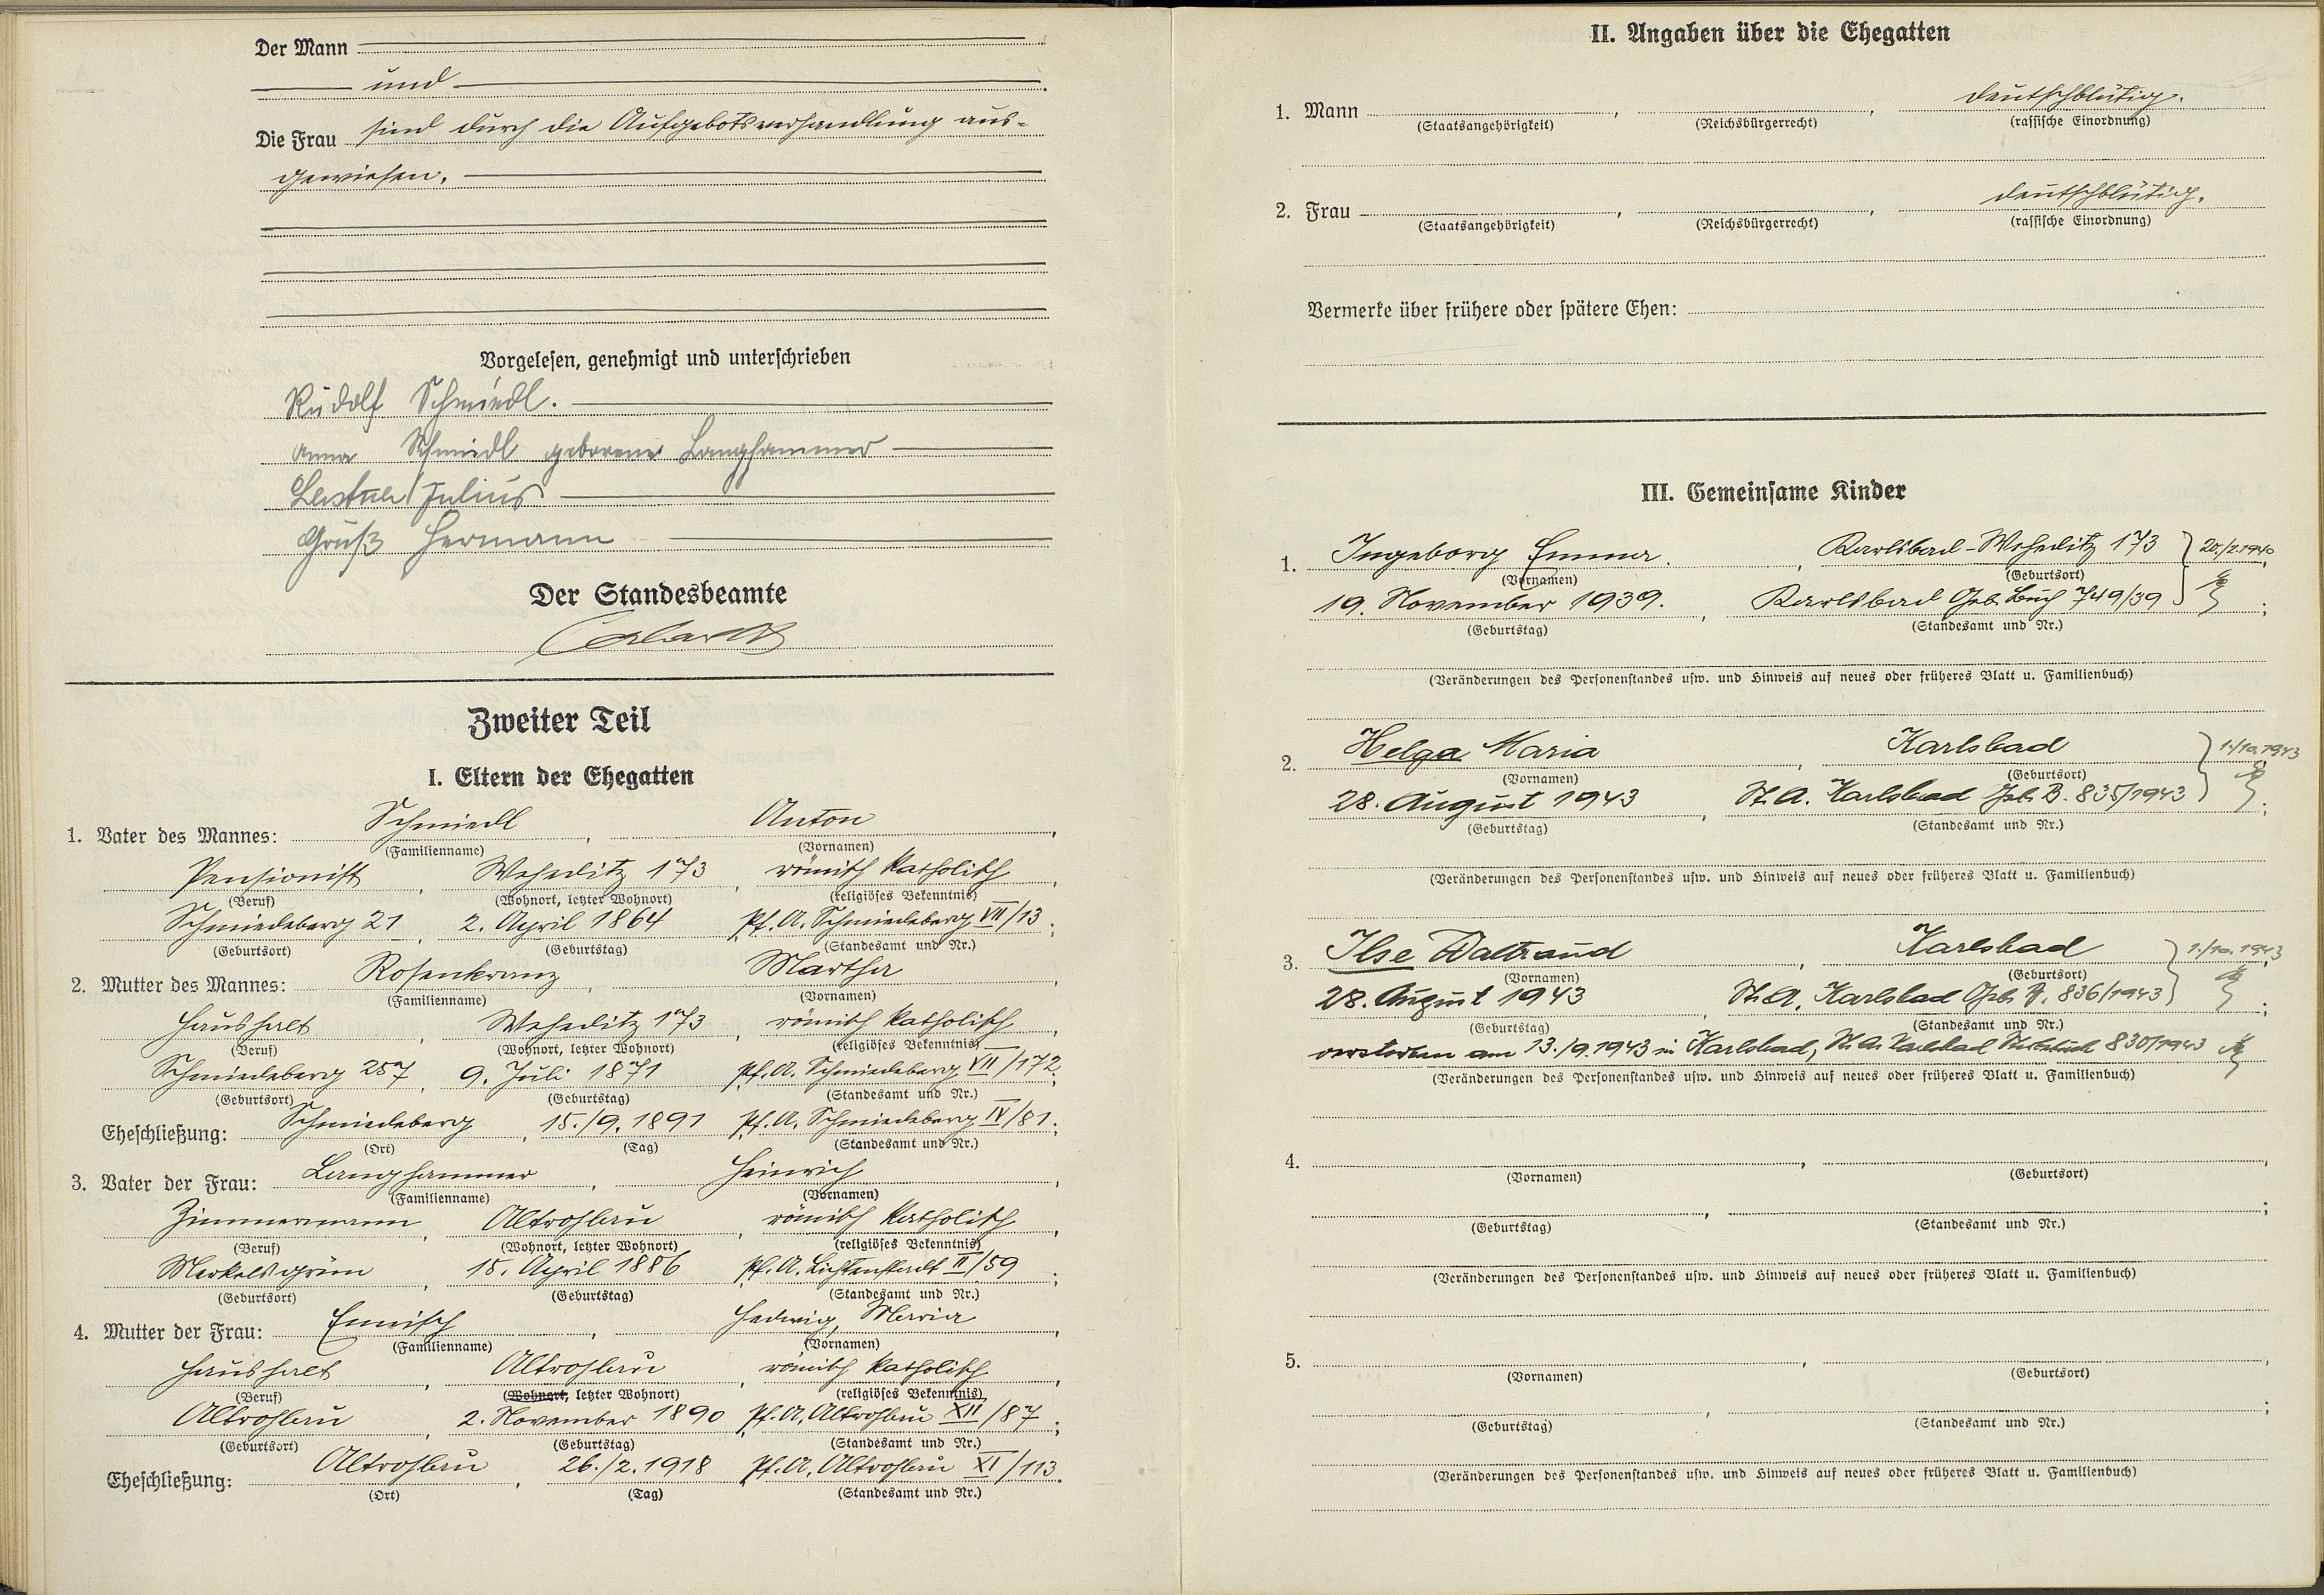 Der Mann
und
Die Frau sind durch die Aufgebotsverhandlung aus-
gewiesen.
Vorgelesen, genehmigt und unterschrieben
Rudolf Schmiedl.
Anna Schmiedl geborene Langhammer
Julius
Gruß Hermann
Der Standesbeamte
Zweiter Teil
I. Eltern der Ehegatten
1. Vater des Mannes: Schmiedl, Anton,
(Familienname) (Vornamen)
Pensionist, Weheditz 173, römisch katholisch,
(Beruf) (Wohnort, letzter Wohnort) (religiöses Bekenntnis)
Schmiedeberg 21, 2. April 1864 Pf. A. Schmiedeberg VII/13;
(Geburtsort) (Geburtstag) (Standesamt und Nr.)
2. Mutter des Mannes: Rosenkranz, Martha,
(Familienname) (Vornamen)
Haushalt, Weheditz 173, römisch katholisch,
(Beruf) (Wohnort, letzter Wohnort) (religiöses Bekenntnis)
Schmiedeberg 257, 9. Juli 1871 Pf. A. Schmiedeberg VII/172;
(Geburtsort) (Geburtstag) (Standesamt und Nr.)
Eheschließung: Schmiedeberg, 15./9.1891 Pf. A. Schmiedeberg IV/81;
(Ort) (Tag) (Standesamt und Nr.)
3. Vater der Frau: Langhammer, Heinrich,
(Familienname) (Vornamen)
Zimmermann, Altrohlau, römisch katholisch,
(Beruf) (Wohnort, letzter Wohnort) (religiöses Bekenntnis)
Merkelsgrün, 15. April 1886 Pf. A. Lichtenstadt II/59;
(Geburtsort) (Geburtstag) (Standesamt und Nr.)
4. Mutter der Frau: Hedwig, Maria,
(Familienname) (Vornamen)
Haushalt, Altrohlau, römisch katholisch,
(Beruf) (Wohnort, letzter Wohnort) (religiöses Bekenntnis)
Altrohlau, 2. November 1890 Pf. A. Altrohlau XII/87;
(Geburtsort) (Geburtstag) (Standesamt und Nr.)
Eheschließung: Altrohlau, 26./2.1918 Pf. A. Altrohlau XI/113.
(Ort) (Tag) (Standesamt und Nr.)
II. Angaben über die Ehegatten
1. Mann , , deutschblütig.
(Staatsangehörigkeit) (Reichsbürgerrecht) (rassische Einordnung)
2. Frau , , deutschblütig.
(Staatsangehörigkeit) (Reichsbürgerrecht) (rassische Einordnung)
Vermerke über frühere oder spätere Ehen:
III. Gemeinsame Kinder
1. Ingeborg Emma., Karlsbad-Weheditz 173 20./2.1940
(Vornamen) (Geburtsort)
19. November 1939., Karlsbad Geb. Buch 749/39;
(Geburtstag) (Standesamt und Nr.)
(Veränderungen des Personenstandes usw. und Hinweis auf neues oder früheres Blatt u. Familienbuch)
2. Helga Maria, Karlsbad 1./10.1943
(Vornamen) (Geburtsort)
28. August 1943, St. A. Karlsbad Geb. B. 835/1943;
(Geburtstag) (Standesamt und Nr.)
(Veränderungen des Personenstandes usw. und Hinweis auf neues oder früheres Blatt u. Familienbuch)
3. Ilse Waltraud, Karlsbad 1./10.1943
(Vornamen) (Geburtsort)
28. August 1943, St. A. Karlsbad Geb. B. 836/1943;
(Geburtstag) (Standesamt und Nr.)
verstorben am 13./9.1943 in Karlsbad, St. A. Karlsbad Sterbebuch 830/1943
(Veränderungen des Personenstandes usw. und Hinweis auf neues oder früheres Blatt u. Familienbuch)
4. , ,
(Vornamen) (Geburtsort)
, ;
(Geburtstag) (Standesamt und Nr.)
(Veränderungen des Personenstandes usw. und Hinweis auf neues oder früheres Blatt u. Familienbuch)
5. , ,
(Vornamen) (Geburtsort)
, ;
(Geburtstag) (Standesamt und Nr.)
(Veränderungen des Personenstandes usw. und Hinweis auf neues oder früheres Blatt u. Familienbuch)